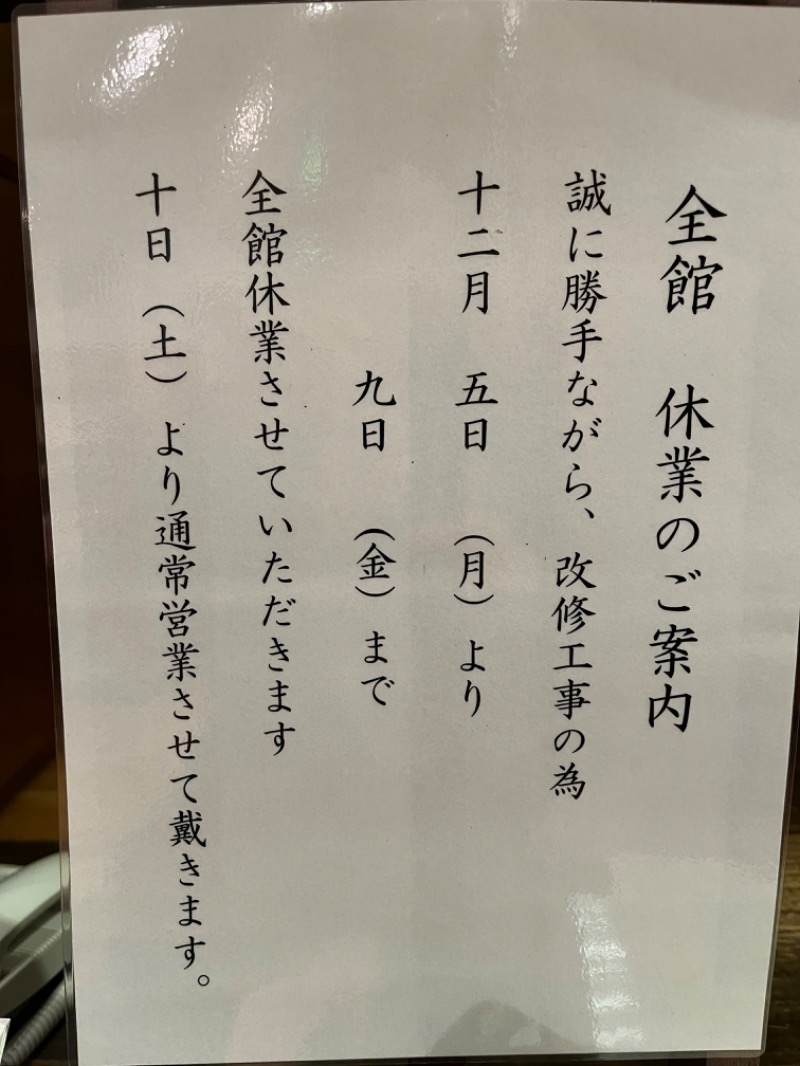 全館 休業のご案内
誠に勝手ながら、改修工事の為
十二月 五日 （月）より
九日 （金）まで
全館休業させていただきます
十日 （土） より通常営業させて戴きます。